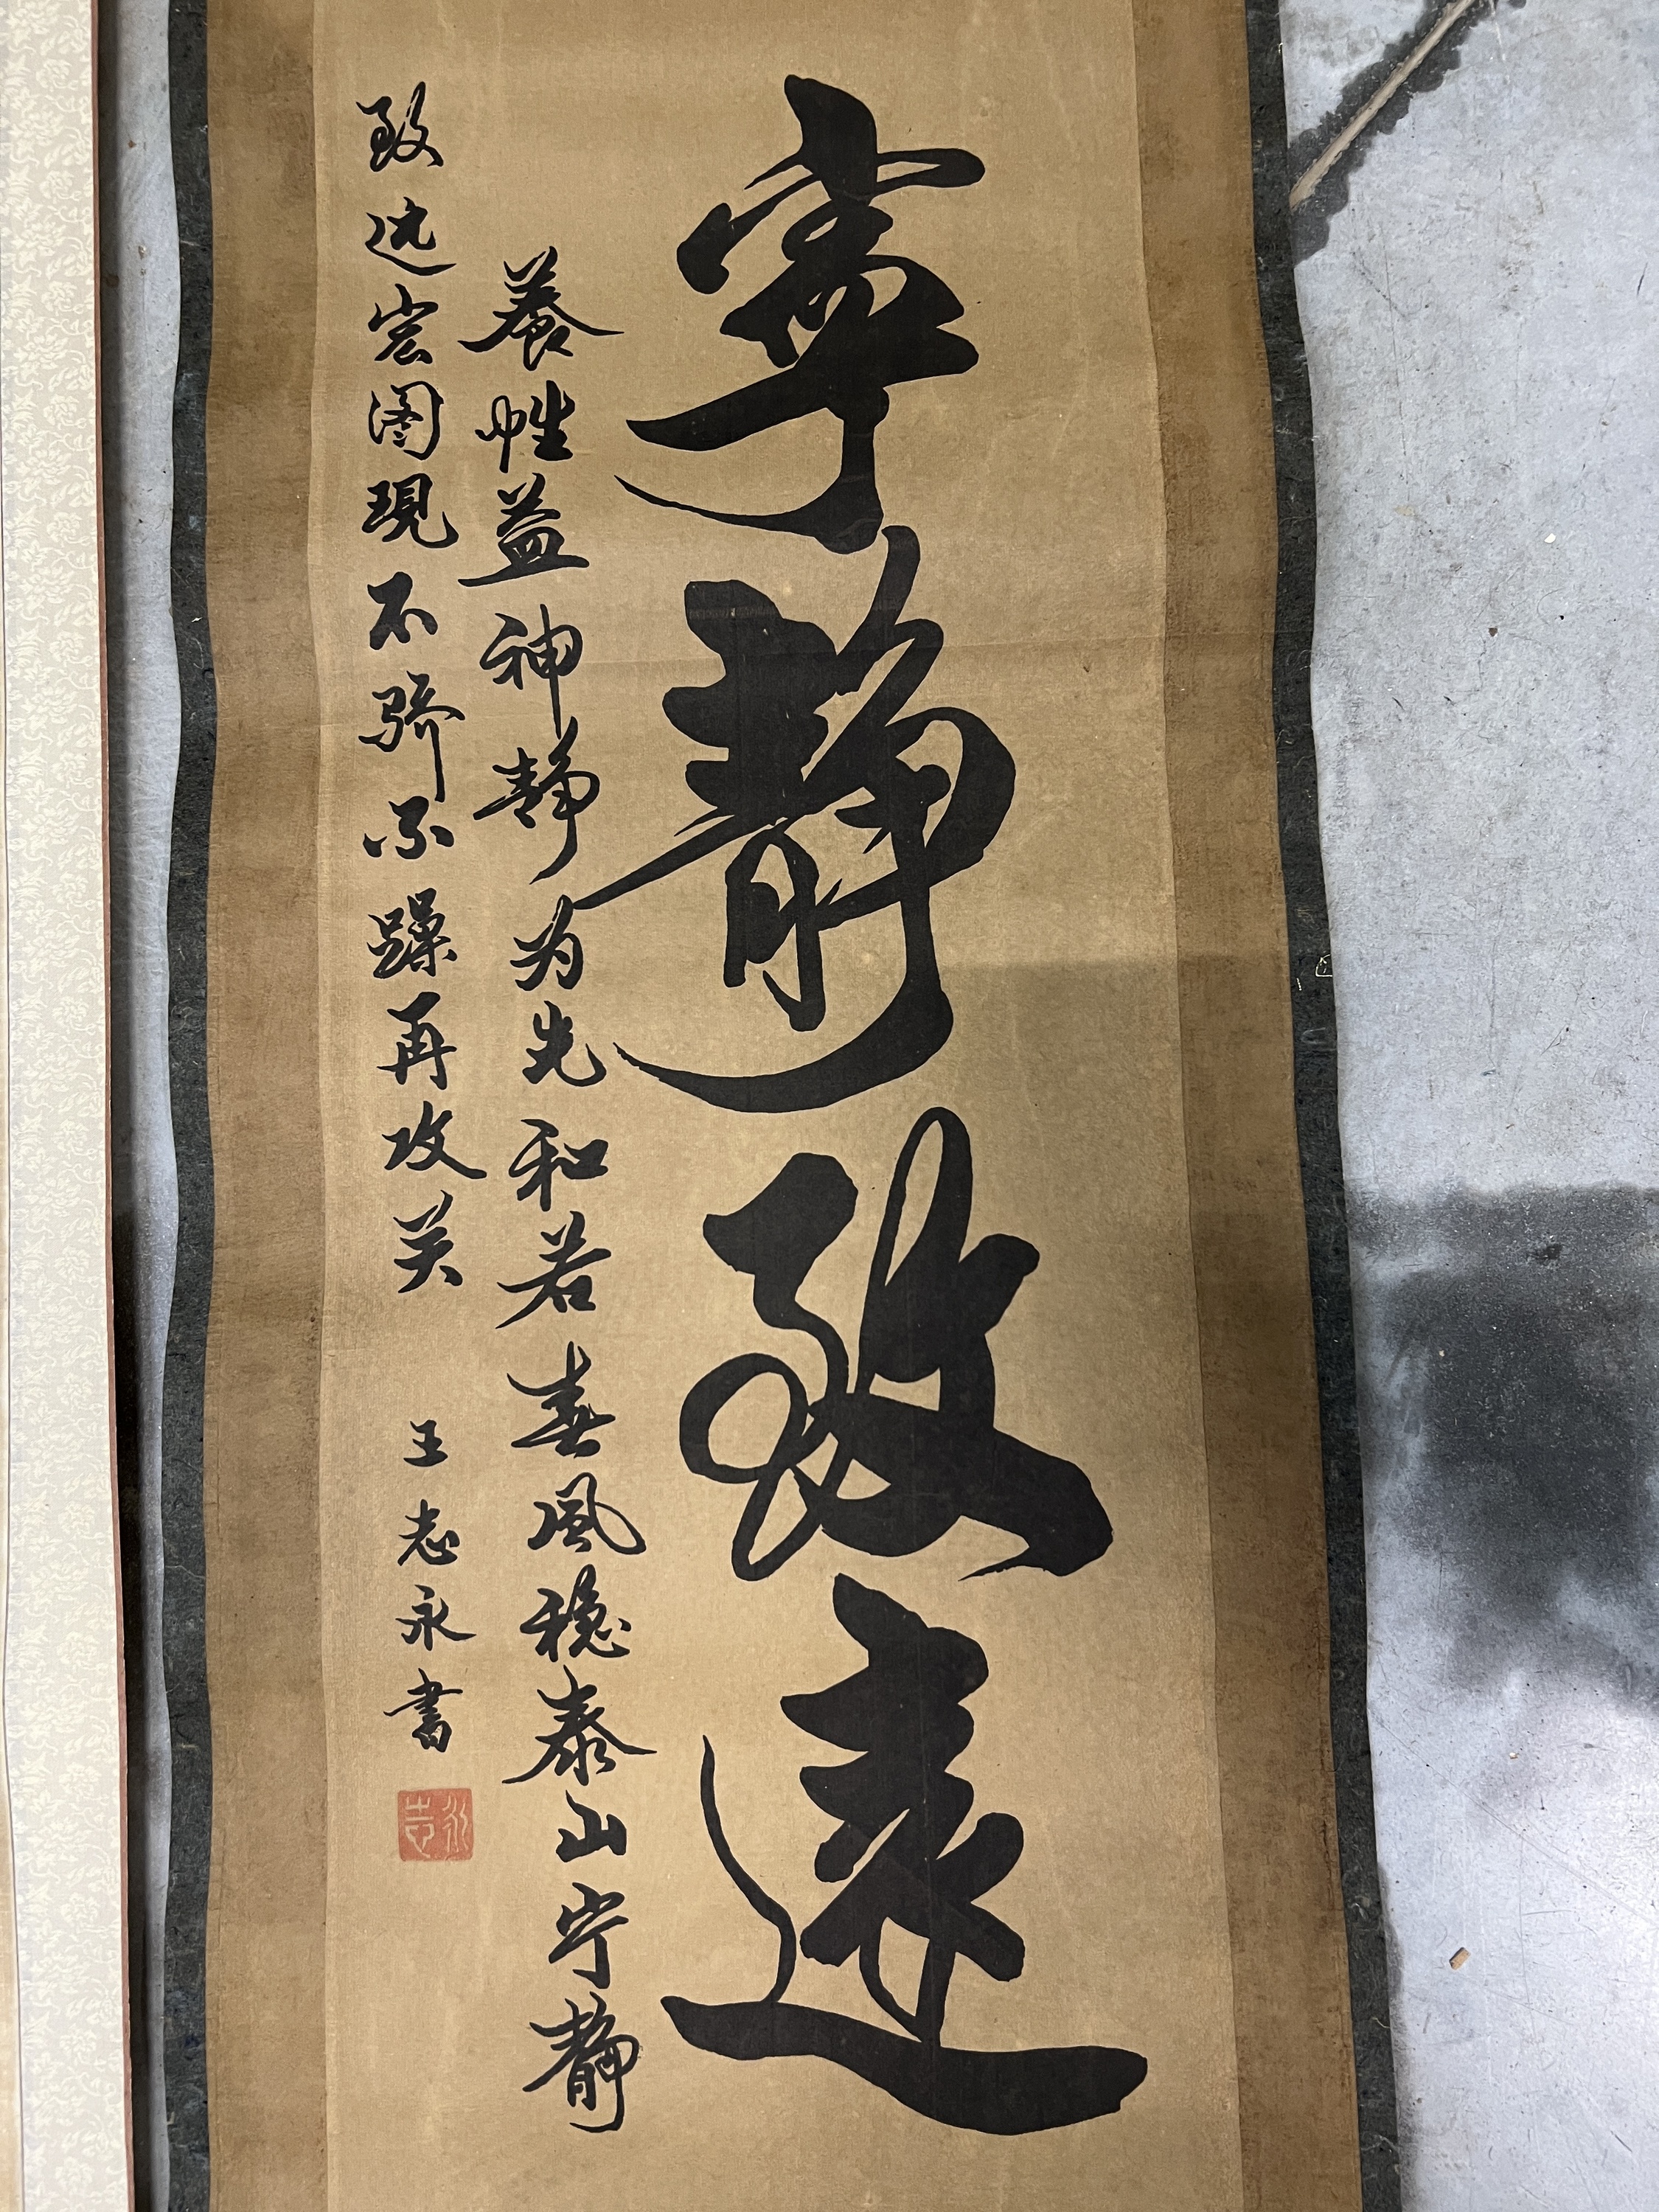 寧靜致遠
養性益神静为先和若春風稳泰山宁靜
致远宏图現不骄不躁再攻关
王志永書